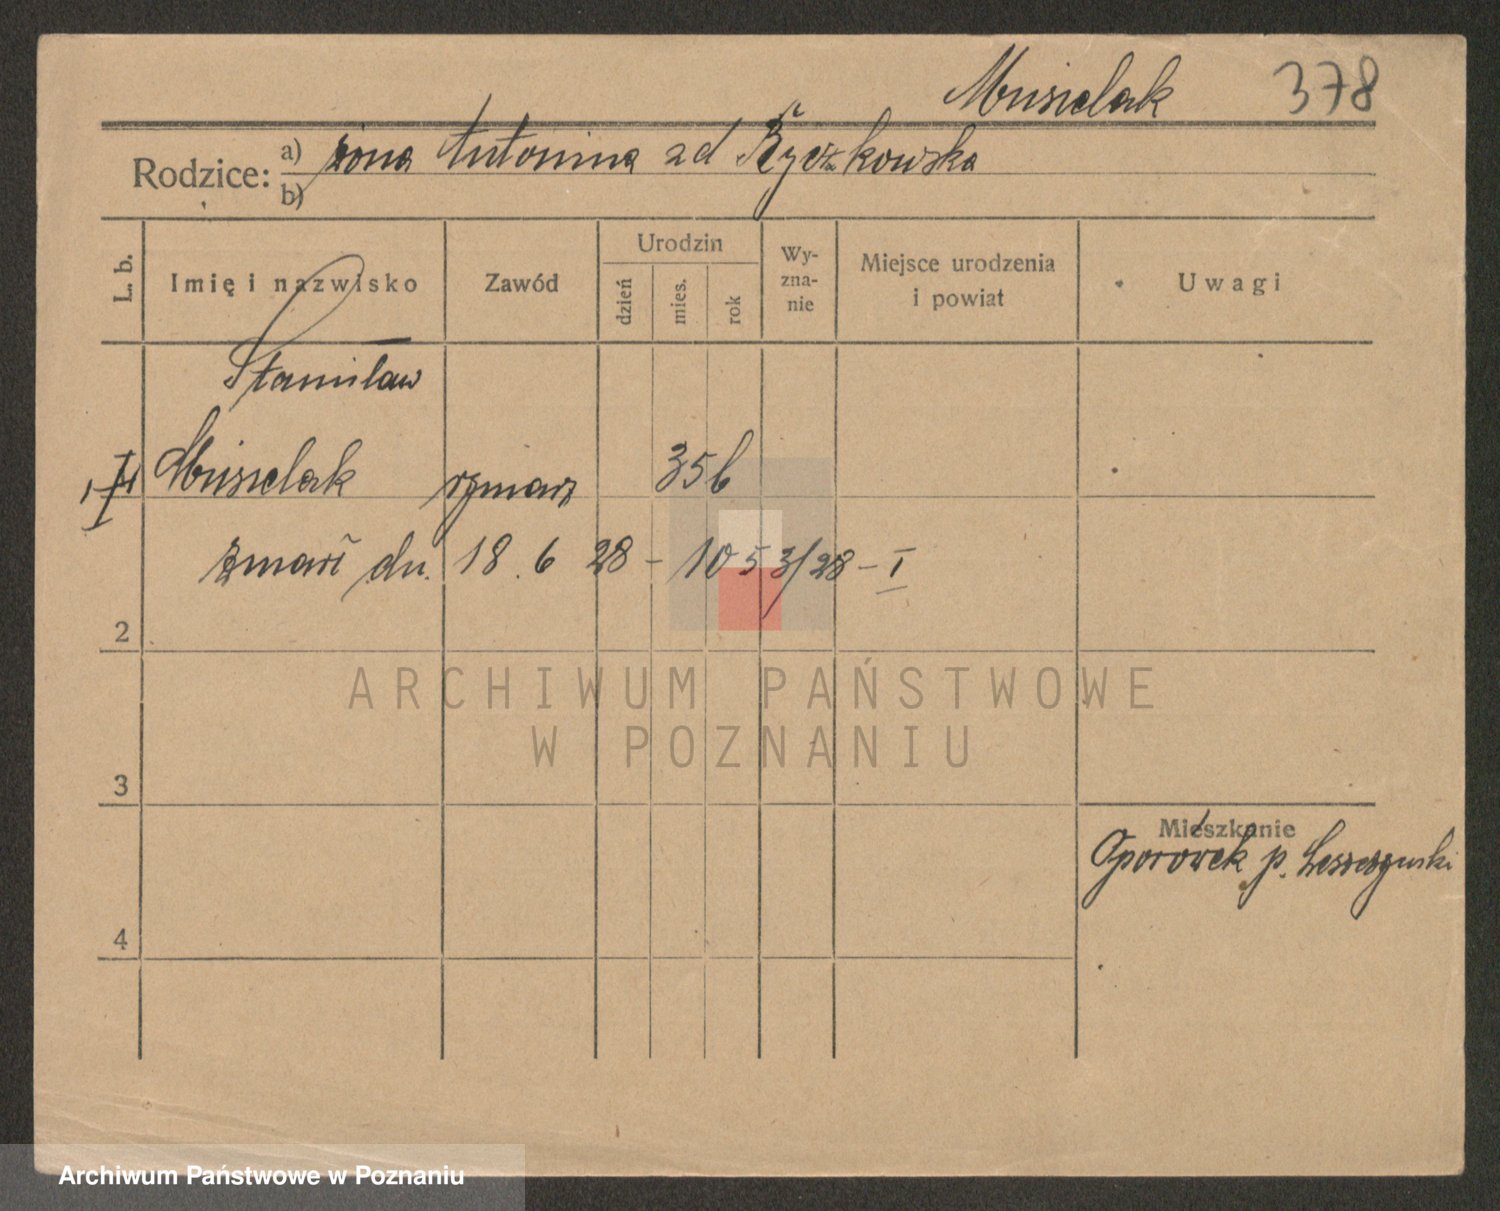 Musielak 378
Rodzice: a) żona Antonina zd Ryczkowska
b)
L. b. Imię i nazwisko Zawód Urodzin dzień mies. rok Wy-zna-nie Miejsce urodzenia i powiat Uwagi
Stanisław
Musielak rymarz 35 b
zmarł dn. 18. 6 28 - 1053/28 - I
2
ARCHIWUM PAŃSTWOWE
W POZNANIU
3
Mieszkanie
Oporówek p.
4
Archiwum Państwowe w Poznaniu